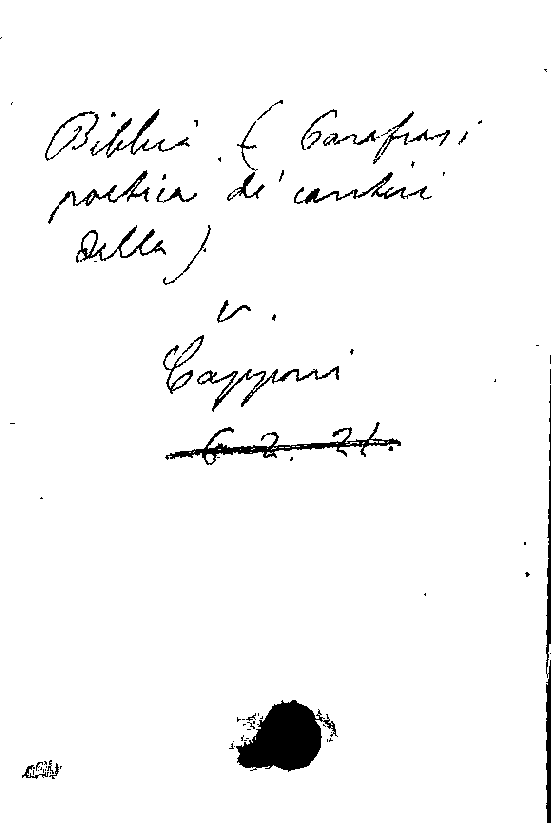 Bibbia. (Parafrasi
poetica de' cantici
della)
v.
Capponi
6. 2. 21.